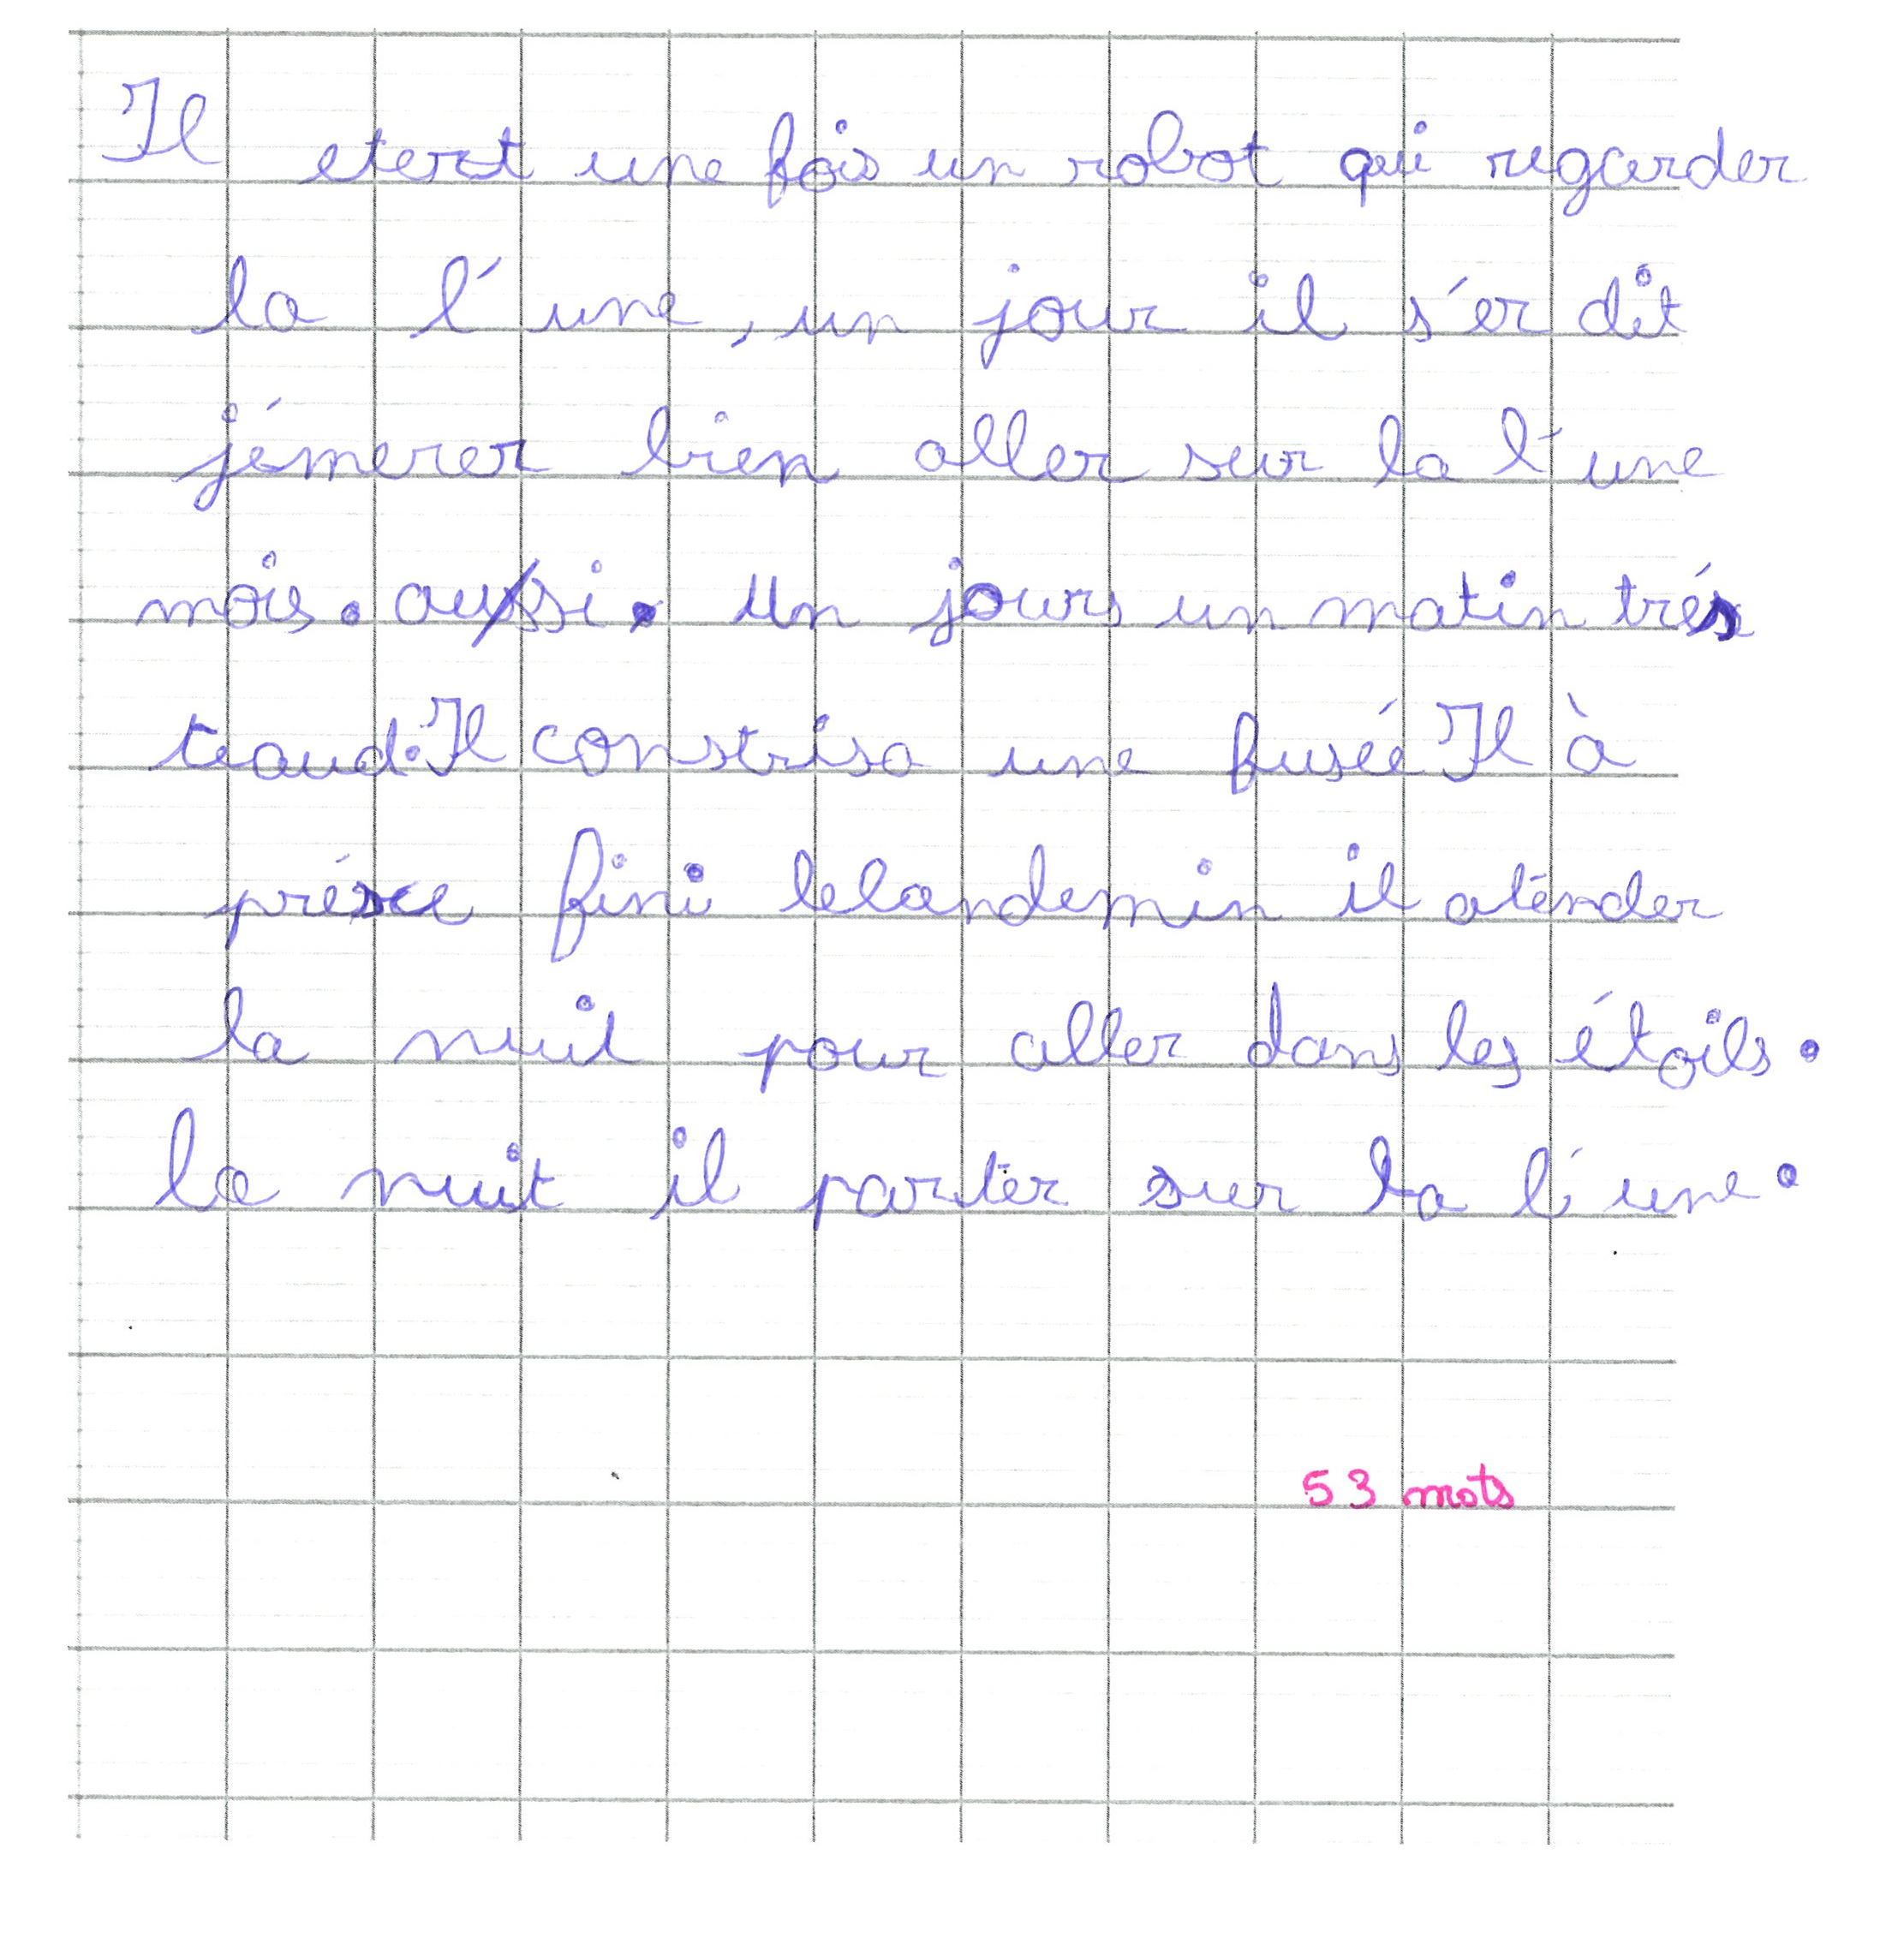 Il etert une fois un robot qui regarder
la l'une, un jour il s'er dit
j'émerer bien aller sur la l'une
mois. aussi. Un jours un matin trés
teaud. Il constrisa une fusée Il à
présce fini lelandemin il aténder
la nuit pour aller dans les étoils.
la nuit il parter sur la l'une.
53 mots